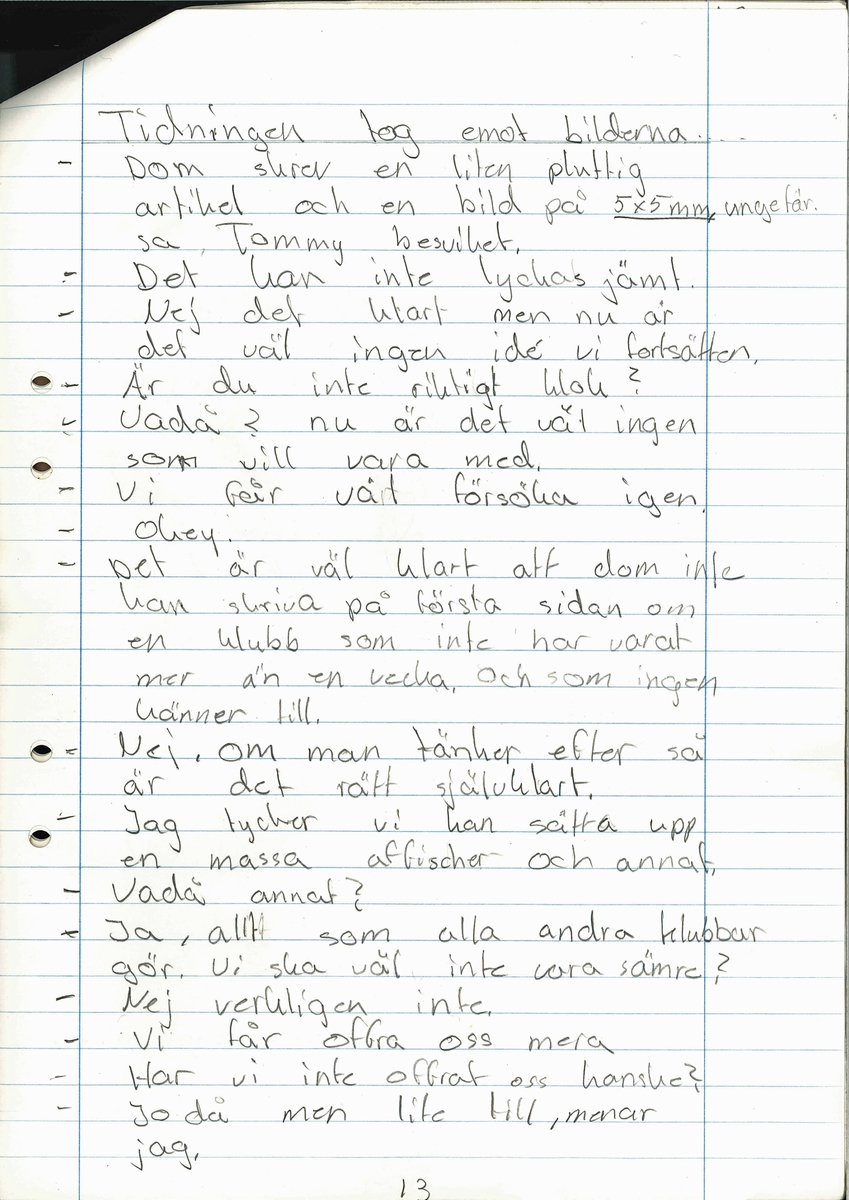 Tidningen tog emot bilderna....
- Dom skrev en liten pluttig
artikel och en bild på 5x5mm, ungefär.
sa, Tommy besviket.
- Det kan inte lyckas jämt.
- Nej det klart men nu är
det väl ingen idé vi fortsätten.
- Är du inte riktigt klok?
- Vadå? nu är det väl ingen
som vill vara med.
- Vi får värt försöka igen.
- Okey.
- Det är väl klart att dom inte
kan skriva på första sidan om
en klubb som inte har varat
mer än en vecka. Och som ingen
känner till.
- Nej. om man tänker efter så
är det rätt självklart.
- Jag tycker vi kan sätta upp
en massa affischer och annat.
- Vadå annat?
- Ja, allt som alla andra klubbar
gör. Vi ska väl inte vara sämre?
- Nej verkligen inte.
- Vi får offra oss mera
- Har vi inte offrat oss kanske?
- Jo då men lite till, menar
jag.
13